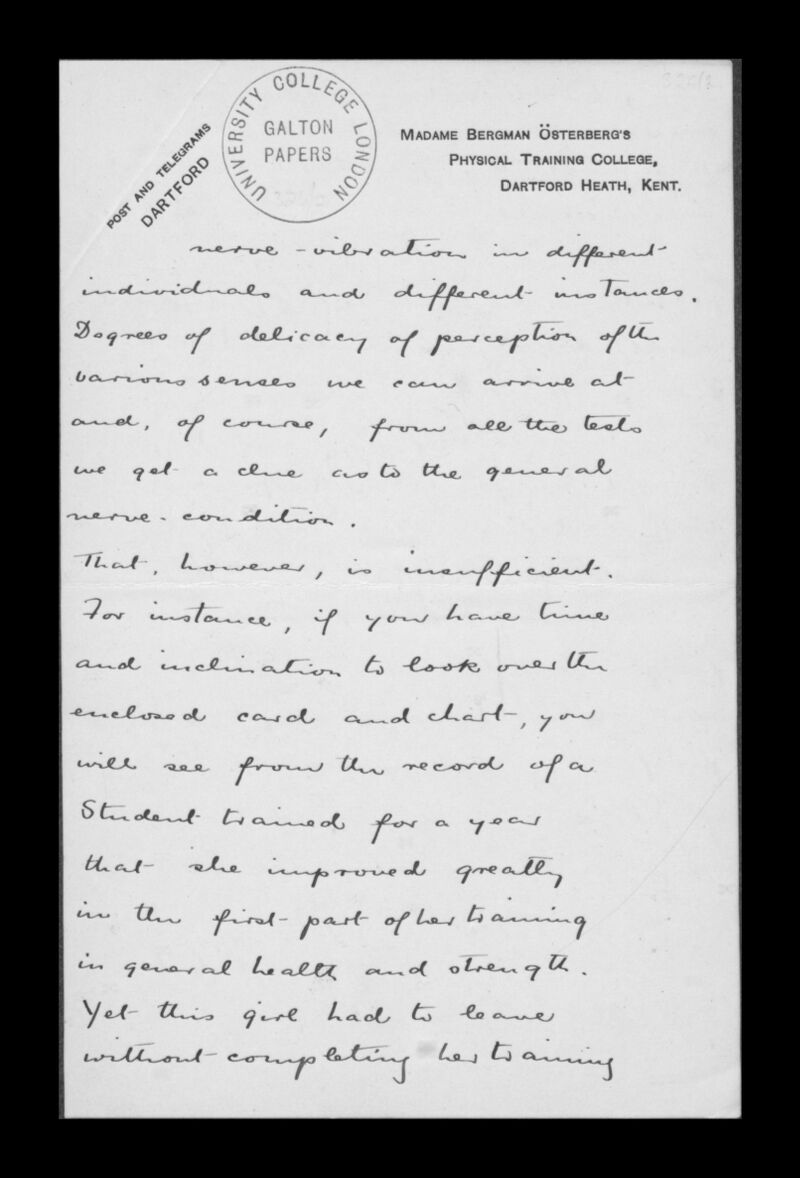 POST AND TELEGRAMS
DARTFORD
UNIVERSITY COLLEGE LONDON
GALTON
PAPERS
MADAME BERGMAN ÖSTERBERG'S
PHYSICAL TRAINING COLLEGE,
DARTFORD HEATH, KENT.
nerve-vibration in different
individuals and different instances.
Degrees of delicacy of perception of the
various senses we can arrive at
and, of course, from all the tests
we get a clue as to the general
nerve-condition.
That, however, is insufficient.
For instance, if you have time
and inclination to look over the
enclosed card and chart, you
will see from the record of a
Student trained for a year
that she improved greatly
in the first part of her training
in general health and strength.
Yet this girl had to leave
without completing her training